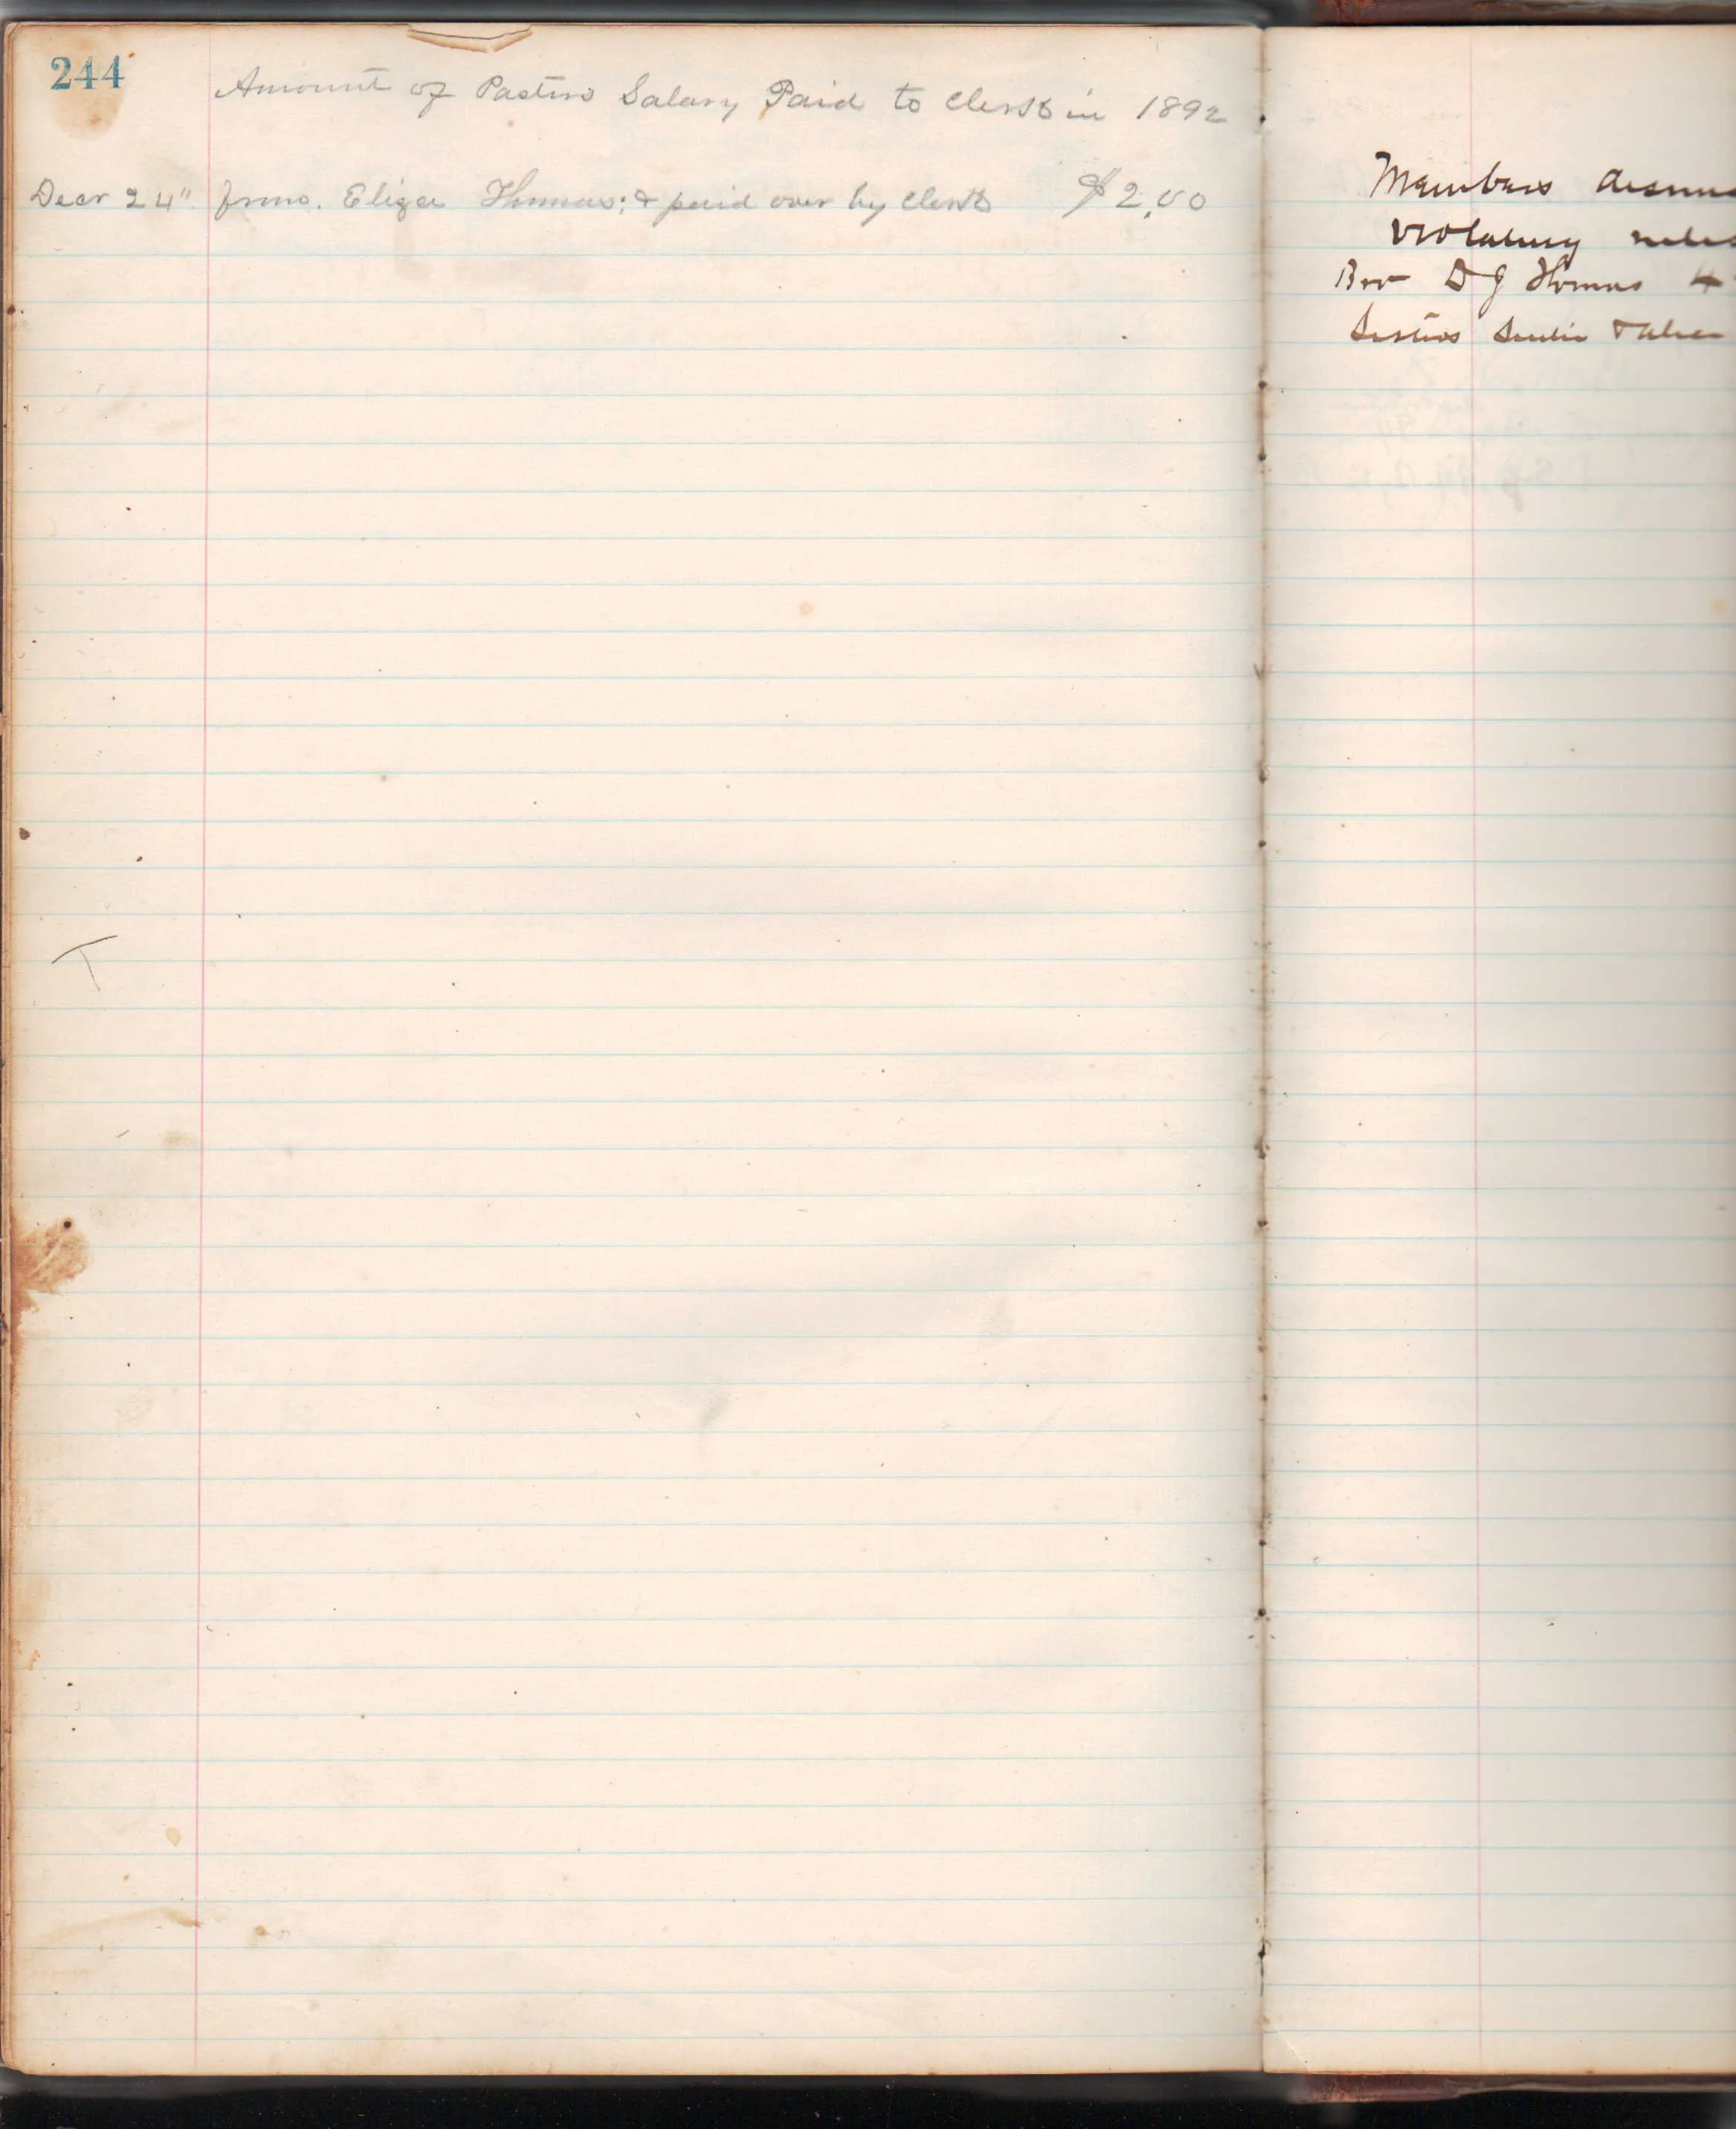 244
Amount of Pastors Salary Paid to Clerk in 1892
Decr 24" from. Eliza Thomas; & paid over by Clerk $2.00
Members
violating rules
Bro D J Thomas
Sisters